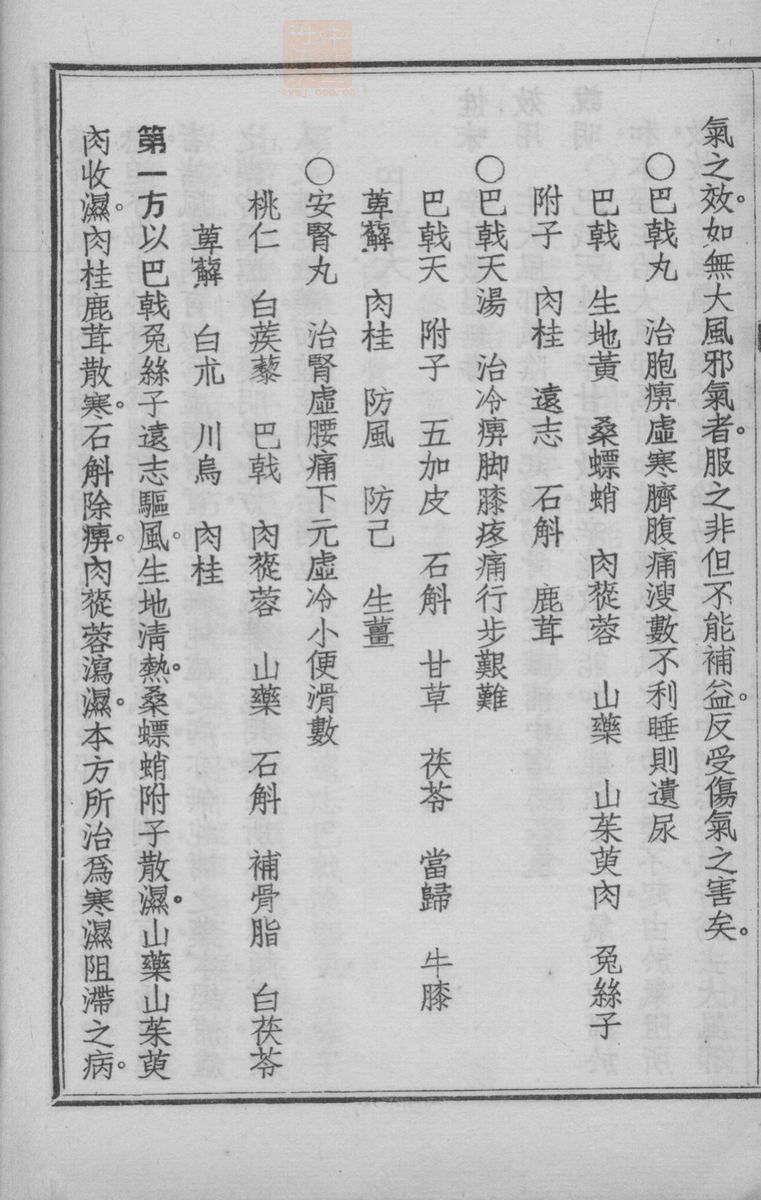 氣之效。如無大風邪氣者。服之非但不能補益。反受傷氣之害矣。
○巴戟丸　治胞痹虛寒臍腹痛溲數不利睡則遺尿
巴戟　生地黃　桑螵蛸　肉蓯蓉　山藥　山茱萸肉　兔絲子
附子　肉桂　遠志　石斛　鹿茸
○巴戟天湯　治冷痹脚膝疼痛行步艱難
巴戟天　附子　五加皮　石斛　甘草　茯苓　當歸　牛膝
萆薢　肉桂　防風　防己　生薑
○安腎丸　治腎虛腰痛下元虛冷小便滑數
桃仁　白蒺藜　巴戟　肉蓯蓉　山藥　石斛　補骨脂　白茯苓
萆薢　白朮　川烏　肉桂
第一方以巴戟兔絲子遠志驅風。生地淸熱。桑螵蛸附子散濕。山藥山茱萸
肉收濕。肉桂鹿茸散寒。石斛除痹。肉蓯蓉瀉濕。本方所治爲寒濕阻滯之病。